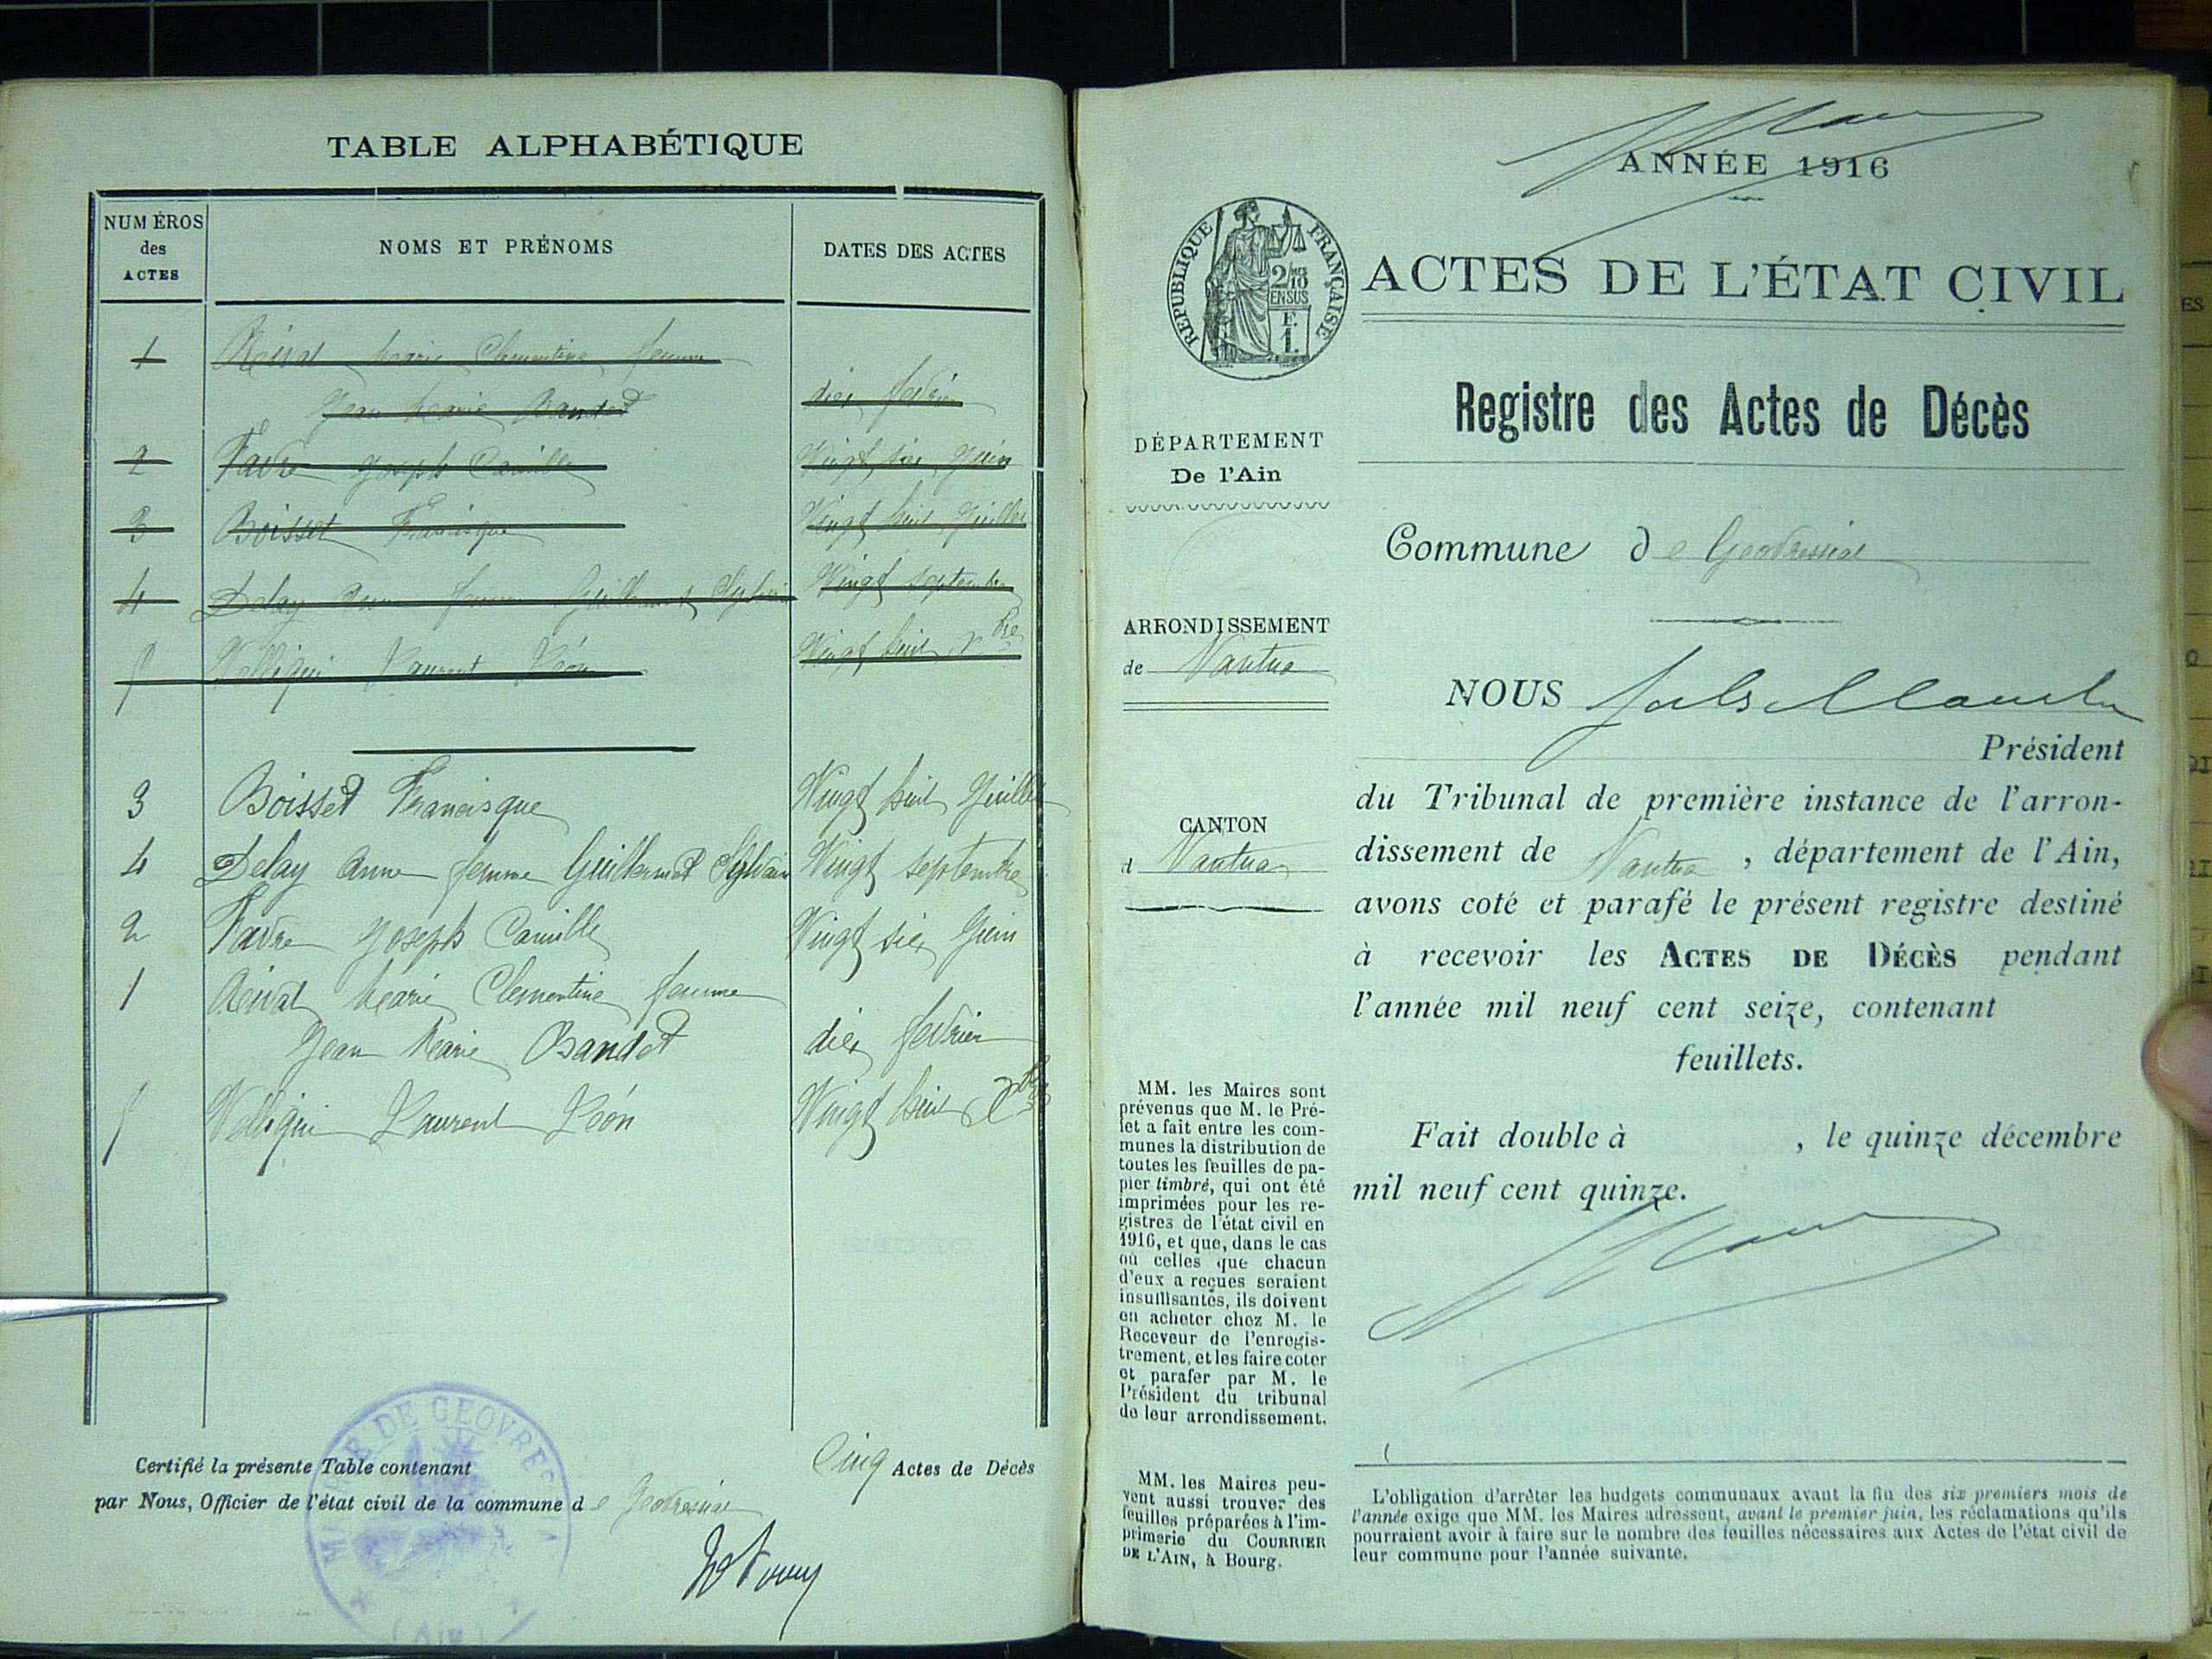 TABLE ALPHABÉTIQUE
NUMÉROS
des
ACTES
NOMS ET PRÉNOMS
DATES DES ACTES
1 Marie Clementine femme
Jean Marie Bandet dix fevrier
2 Favre Joseph Camille Vingt six Juin
3 Boisset Francisque Vingt huit Juillet
4 Delay Anne femme Guillermet Sylvain Vingt septembre
5 Laurent Léon Vingt huit Xbre
3 Boisset Francisque Vingt huit Juillet
4 Delay Anne femme Guillermet Sylvain Vingt septembre
2 Favre Joseph Camille Vingt six Juin
1 Marie Clementine femme
Jean Marie Bandet dix fevrier
5 Laurent Léon Vingt huit Xbre
Certifié la présente Table contenant Cinq Actes de Décès
par Nous, Officier de l'état civil de la commune de Geovressiat
MAIRIE DE GEOVRESSIAT
(Ain)
ANNÉE 1916
RÉPUBLIQUE FRANÇAISE
2/10
EN SUS
F.
1.
ACTES DE L'ÉTAT CIVIL
Registre des Actes de Décès
DÉPARTEMENT
De l'Ain
Commune de Geovressiat
ARRONDISSEMENT
de Nantua
CANTON
d Nantua
NOUS Jules
Président
du Tribunal de première instance de l'arron-
dissement de Nantua, département de l'Ain,
avons coté et parafé le présent registre destiné
à recevoir les ACTES DE DÉCÈS pendant
l'année mil neuf cent seize, contenant
feuillets.
Fait double à , le quinze décembre
mil neuf cent quinze.
MM. les Maires sont
prévenus que M. le Pré-
fet a fait entre les com-
munes la distribution de
toutes les feuilles de pa-
pier timbré, qui ont été
imprimées pour les re-
gistres de l'état civil en
1916, et que, dans le cas
où celles que chacun
d'eux a reçues seraient
insuffisantes, ils doivent
en acheter chez M. le
Receveur de l'enregis-
trement, et les faire coter
et parafer par M. le
Président du tribunal
de leur arrondissement.
MM. les Maires peu-
vent aussi trouver des
feuilles préparées à l'im-
primerie du COURRIER
DE L'AIN, à Bourg.
L'obligation d'arrêter les budgets communaux avant la fin des six premiers mois de
l'année exige que MM. les Maires adressent, avant le premier juin, les réclamations qu'ils
pourraient avoir à faire sur le nombre des feuilles nécessaires aux Actes de l'état civil de
leur commune pour l'année suivante.